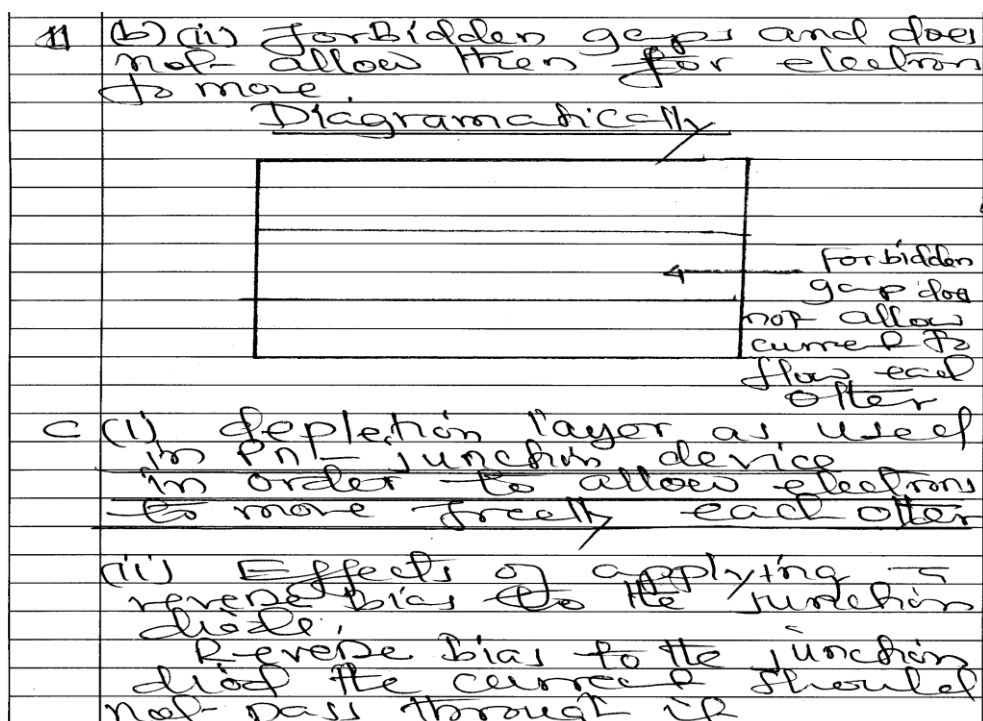 11 (b) (ii) Forbidden gaps and does
not allow then for electron
to move
Diagramatically
Forbidden
gap does
not allow
current to
flow each
other
C (i) depletion layer as used
in Pn- junction device
in order to allow electrons
to move freely each other
(ii) Effects of applying a
reverse bias to the junction
diode.
Reverse bias to the junction
diod the current should
not pass through it